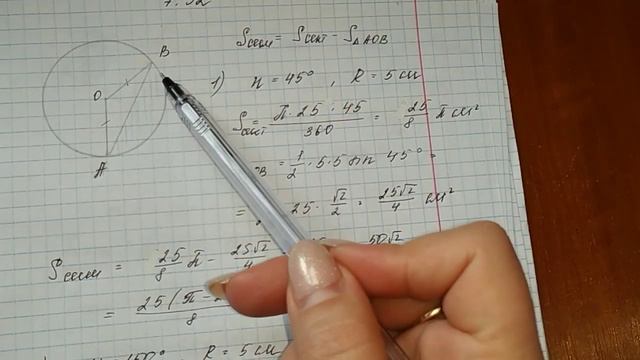 7.52
B
O
A
Sсегм = Sсект - S△AOB
1) n = 45° , R = 5 см
Sсект = π · 25 · 45 / 360 = 25/8 π см²
B = 1/2 · 5 · 5 sin 45° =
= 25 · √2/2 = 25√2/4 см²
Sсегм = 25/8 π - 25√2/4 50√2
= 25(π - 2 / 8
50° , R = 5 см